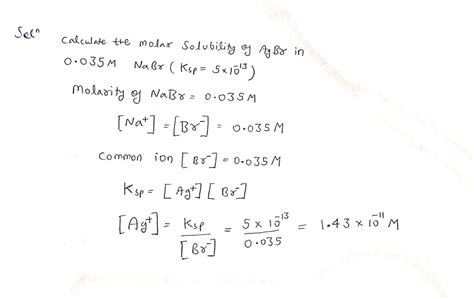 Solⁿ Calculate the molar Solubility of AgBr in
0.035M NaBr ( Ksp = 5×10⁻¹³)
Molarity of NaBr = 0.035M
[Na⁺] = [Br⁻] = 0.035M
Common ion [Br⁻] = 0.035M
Ksp = [Ag⁺] [Br⁻]
[Ag⁺] = Ksp / [Br⁻] = 5 × 10⁻¹³ / 0.035 = 1.43 × 10⁻¹¹ M